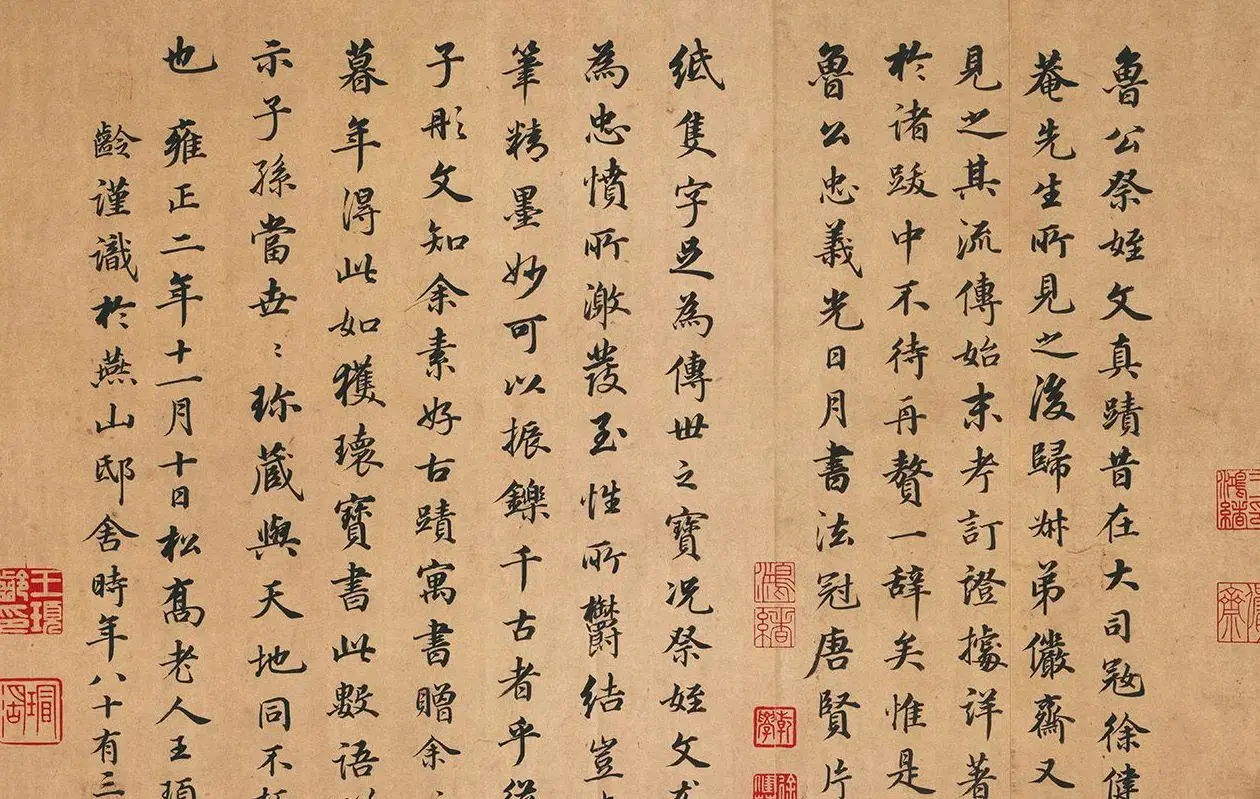 魯公祭姪文真蹟昔在大司寇徐健
菴先生所見之後歸叔弟儼齋又
見之其流傳始末考訂證據詳著
於諸跋中不待再贅一辞矣惟是
魯公忠義光日月書法冠唐賢片
紙隻字足為傳世之寶況祭姪文尤
為忠憤所激發至性所鬱結豈
筆精墨妙可以振鑠千古者乎從
子彤文知余素好古蹟寓書贈余
暮年得此如獲瓌寶書此數語以
示子孫當世〻珍藏與天地同不朽
也雍正二年十一月十日松喬老人王頊
齡謹識於燕山邸舍時年八十有三
鴻緒
鴻緒
乾學
王頊齡印